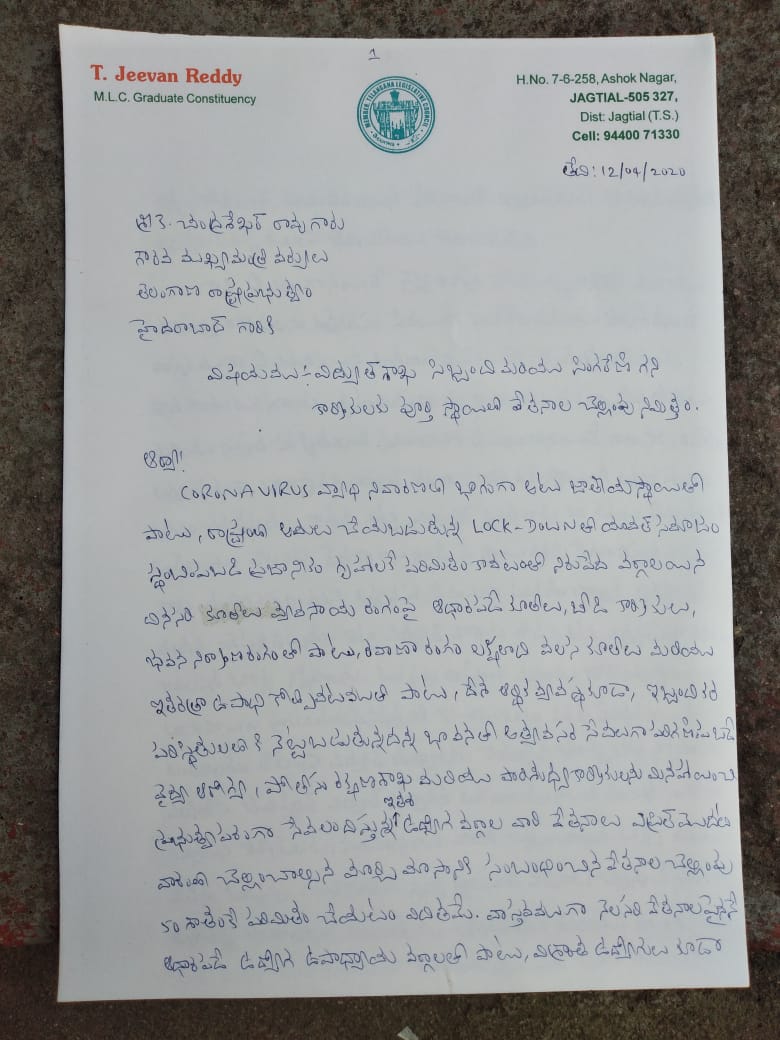 1
T. Jeevan Reddy
M.L.C. Graduate Constituency
MEMBER, TELANGANA LEGISLATIVE COUNCIL
H.No. 7-6-258, Ashok Nagar,
JAGTIAL-505 327,
Dist: Jagtial (T.S.)
Cell: 94400 71330
తేది: 12/04/2020
శ్రీ కె. చంద్రశేఖర్ రావు గారు
గౌరవ ముఖ్యమంత్రి వర్యులు
తెలంగాణ రాష్ట్ర ప్రభుత్వం
హైదరాబాద్ గారికి
విషయము :- విద్యుత్ శాఖ సిబ్బంది మరియు సింగరేణి గని
కార్మికులకు పూర్తి స్థాయిలో వేతనాల చెల్లింపు నిమిత్తం.
ఆర్యా!
CORONA VIRUS వ్యాధి నివారణలో భాగంగా అటు జాతీయస్థాయితో
పాటు, రాష్ట్రంలో అమలు చేయబడుతున్న LOCK-DOWN తో యావత్ సమాజం
స్థంబింపబడి ప్రజానీకం గృహాలకే పరిమితం కావటంతో నిరుపేద వర్గాలయిన
దినసరి కూలీలు వ్యవసాయ రంగంపై ఆధారపడే కూలీలు, బీడి కార్మికులు,
భవన నిర్మాణరంగంతో పాటు, రవాణా రంగం లక్షలాది వలస కూలీలు మరియు
ఇతరత్రా ఉపాధి కోల్పోవటంతో పాటు, దేశ ఆర్థిక వ్యవస్థకూడా, ఇబ్బందికర
పరిస్థితులలోకి నెట్టబడుతున్నదన్న భావనతో అత్యవసర సేవలుగా పరిగణింపబడే
వైద్య ఆరోగ్య, పోలీసు రక్షణశాఖ మరియు పారిశుధ్య కార్మికులను మినహాయించి
ప్రభుత్వపరంగా సేవలందిస్తున్న ఇతర ఉద్యోగ వర్గాల వారి వేతనాలు ఏప్రిల్ మొదటి
వారంలో చెల్లించాల్సిన మార్చి మాసానికి సంబంధించిన వేతనాల చెల్లింపు
50 శాతంకే పరిమితం చేయటం విదితమే. వాస్తవముగా నెలసరి వేతనాలపైననే
ఆధారపడే ఉద్యోగ ఉపాధ్యాయ వర్గాలతో పాటు, విశ్రాంత ఉద్యోగులు కూడా